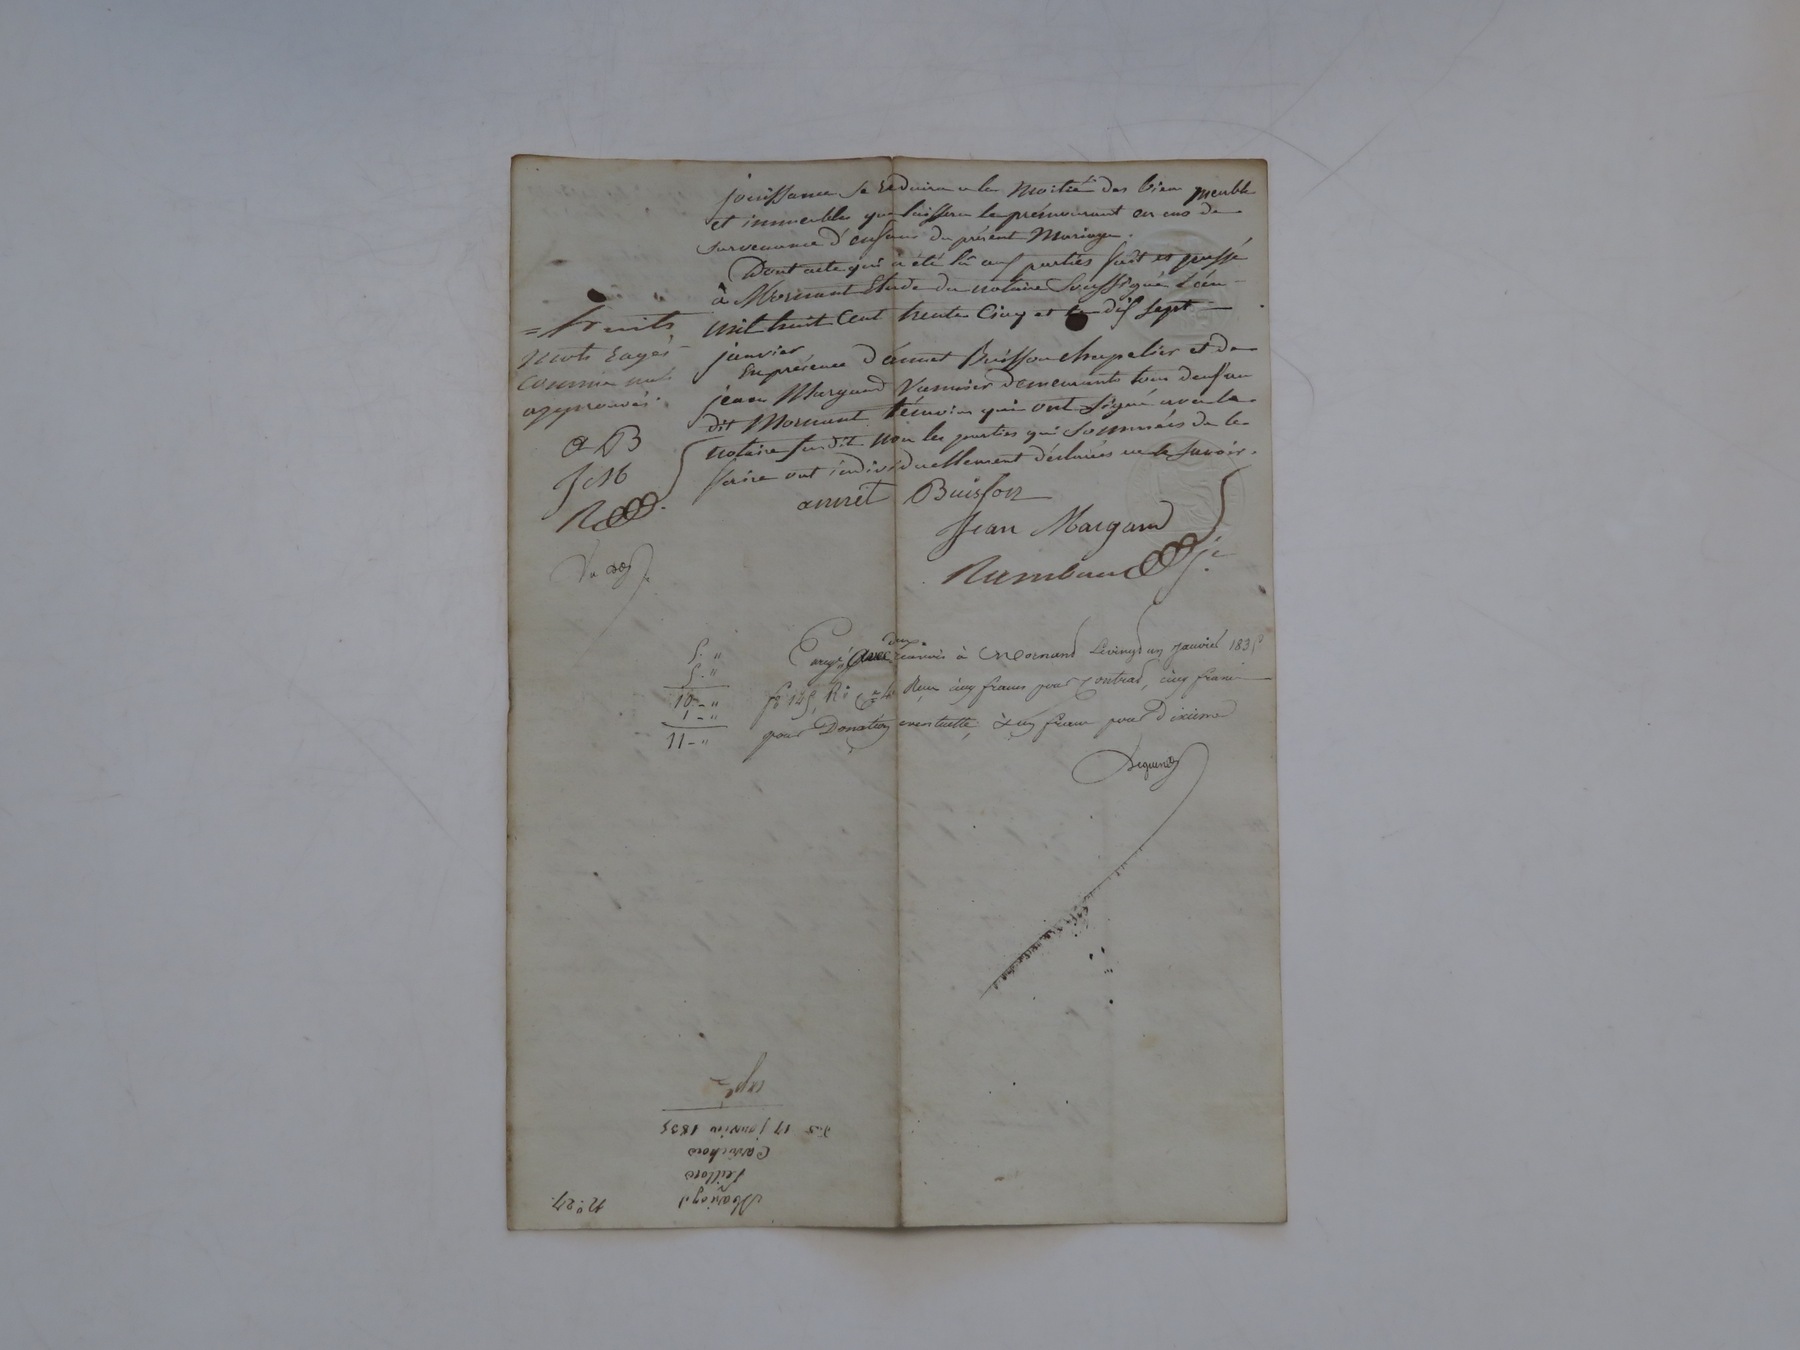 jouissance se réduira a la moitié des bien meuble
et immeubles que laissera le prémourant en cas de
survenance d'enfans du présent Mariage.
Dont acte qui a été lû aux parties fait et passé
à Mornant Etude du notaire Soussigné L'an
mil huit Cent trente Cinq et le dix sept
janvier
En présence d'annet Buisson chapelier et de
jean Margand Vannier demeurants tous deux au
dit Mornant témoins qui ont signé avec le
notaire susdit non les parties qui sommées de le
faire ont individuellement déclarées ne le savoir.
= 
mots rayés
comme nuls
approuvés.
a B
J M
R
annet Buisson
Jean Margand
Rambaud
5. "
5. "
10 - "
1 - "
11 - "
deux
à Mornand Le vingt un janvier 1835
f° 145, Reçu cinq francs pour Contrat, cinq francs
pour Donation eventuelle, & un franc pour Dixieme
N° 27.
Mariage
Cornichons
Du 17 janvier 1835
expé